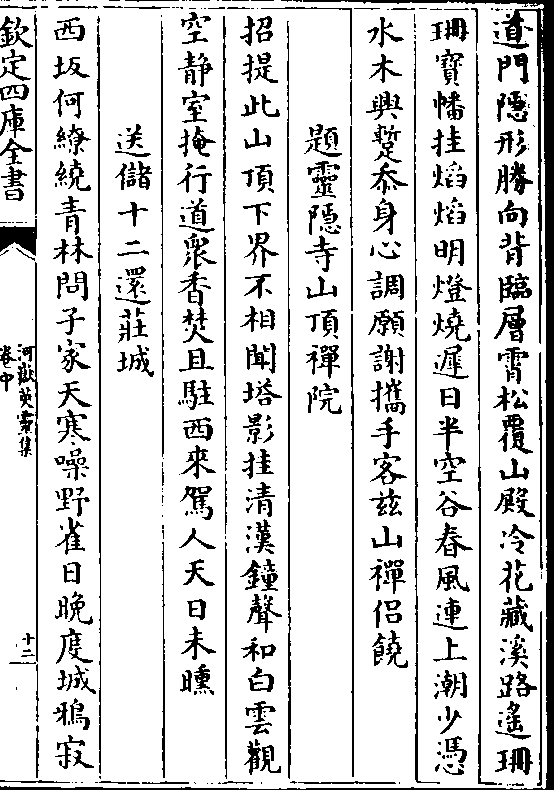 道門隠形勝向背臨層霄松覆山殿冷花藏溪路遙珊
珊寳幡挂焰焰明燈燒遲日半空谷春風連上潮少憑
水木興蹔忝身心調願謝攜手客兹山禪侣饒
題靈隱寺山頂禪院
招提此山頂下界不相聞塔影挂清漢鐘聲和白雲觀
空静室掩行道衆香焚且駐西來駕人天日未曛
送儲十二還莊城
西坂何繚繞青林問子家天寒噪野雀日晚度城鴉寂
欽定四庫全書
河嶽英靈集
卷中
十二